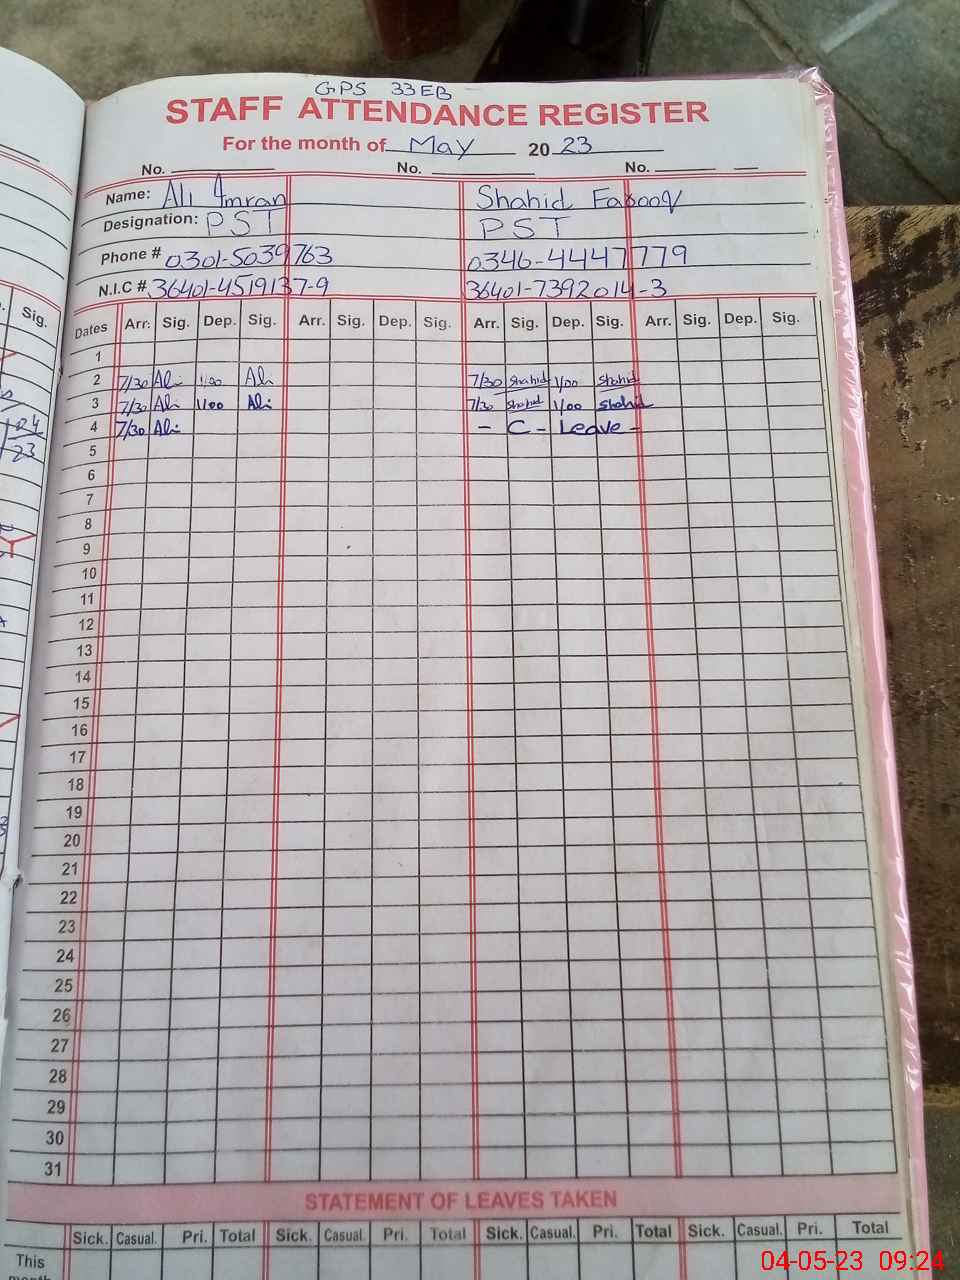 GPS 33EB
STAFF ATTENDANCE REGISTER
For the month of May 20 23
No. No. No.
Name: Ali Imran Shahid Farooq
Designation: PST PST
Phone # 0301-5039763 0346-4447779
N.I.C # 36401-4519137-9 36401-7392014-3
Sig. Dates Arr. Sig. Dep. Sig. Arr. Sig. Dep. Sig. Arr. Sig. Dep. Sig. Arr. Sig. Dep. Sig.
1
2 7/30 Ali 1/00 Ali 7/30 Shahid 1/00 Shahid
3 7/30 Ali 1/00 Ali 7/30 Shahid 1/00 Shahid
4 7/30 Ali - C - Leave -
5
6
7
8
9
10
11
12
13
14
15
16
17
18
19
20
21
22
23
24
25
26
27
28
29
30
31
STATEMENT OF LEAVES TAKEN
Sick. Casual. Pri. Total Sick. Casual. Pri. Total Sick. Casual. Pri. Total Sick. Casual. Pri. Total
This
04-05-23 09:24